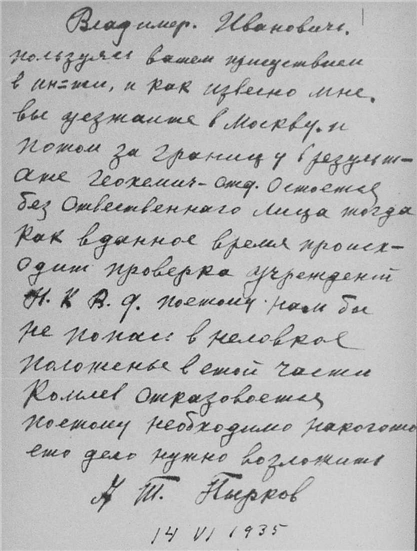 Владимер. Ивановичь.
пользуяс вашем присуствием
в ин-ти, и как извесно мне.
вы уезжаите в Москву. и
потом за границу в результ-
ате геохемич-отд. Остоется
без Отвественнаго лица тогда
как в данное время проис-
ходит проверка учреждений
Н. К. В. Ф. поетому нам бы
не попаст в неловкое
положенье в етой части
Комлев Отказовоется
поетому необходимо накогото
ето дело нужно возложить
Т. Пырков
14 VI 1935